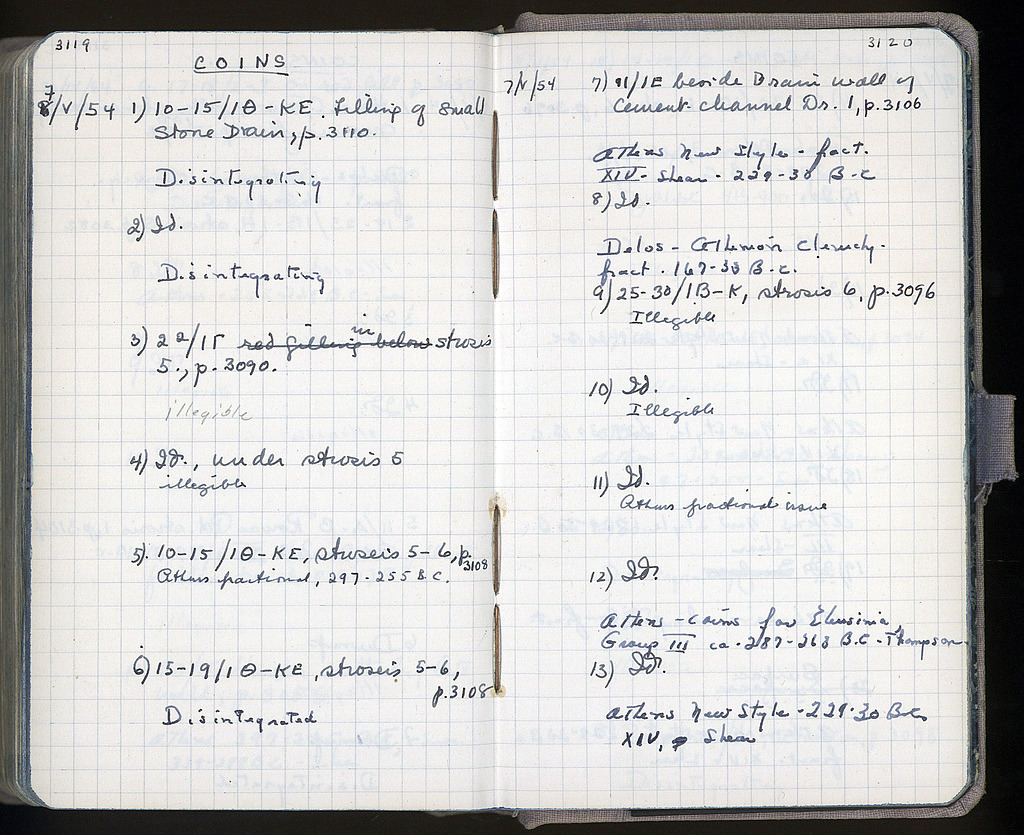 3119
COINS
7/V/54 1) 10-15/ΙΘ-ΚΕ. Filling of Small
Stone Drain, p. 3110.
Disintegrating
2) Id.
Disintegrating
3) 22/ΙΓ red filling in below strosis
5., p. 3090.
illegible
4) Id., under strosis 5
illegible
5). 10-15/ΙΘ-ΚΕ, stroseis 5-6, p. 3108
Athens fractional, 297-255 B.C.
6) 15-19/ΙΘ-ΚΕ, stroseis 5-6,
p. 3108
Disintegrated
3120
7/V/54 7) 91/ΙΕ beside Drain wall of
Cement channel Dr. 1, p. 3106
Athens New Style - fract.
XIV - Shear - 229-30 B.C
8) Id.
Delos - Athenian Cleruchy -
fract. 167-33 B.C.
9) 25-30/ΙΒ-Κ, strosis 6, p. 3096
Illegible
10) Id.
Illegible
11) Id.
Athens fractional issue
12) Id.
Athens - coins for Eleusinia,
Group III ca. 287-263 B.C. - Thompson -
13) Id.
Athens New Style - 229-30 B.C.
XIV, Shear